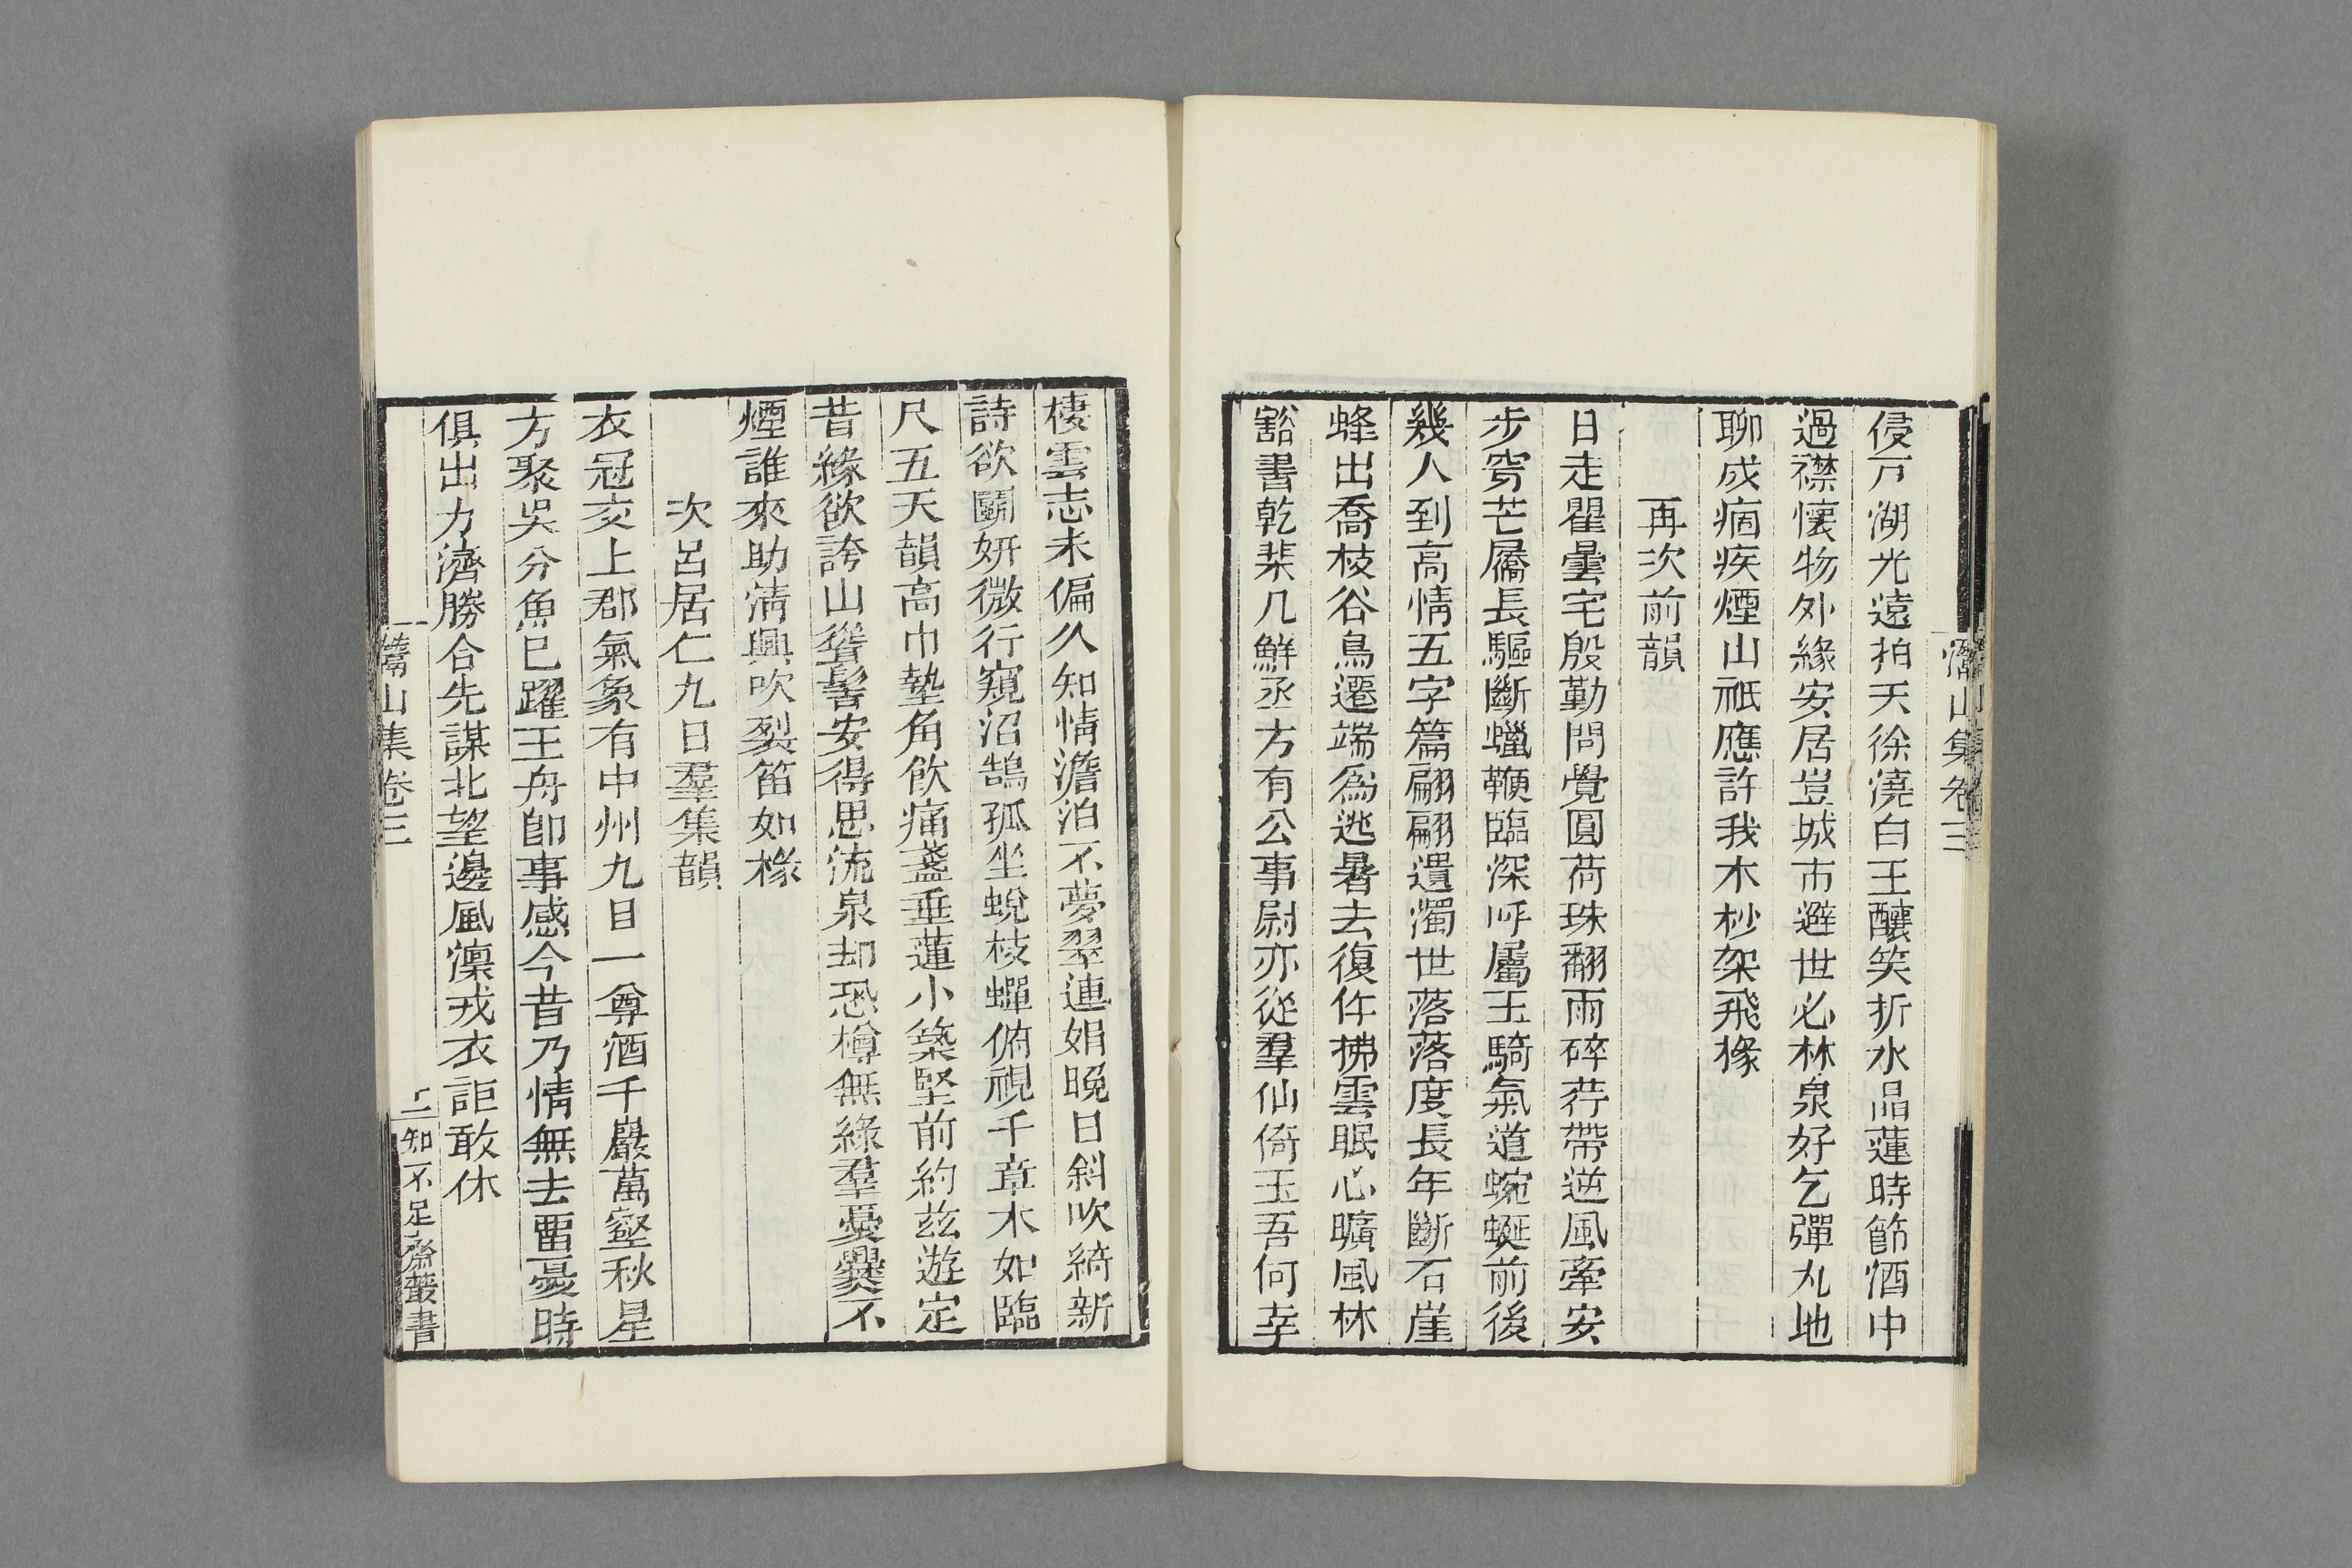 灊山集卷三
侵戸湖光遠拍天徐澆白玉釀笑折水晶蓮時節酒中
過襟懷物外緣安居豈城市避世必林泉好乞彈丸地
聊成痼疾煙山祇應許我木杪架飛椽
再次前韻
日走瞿曇宅殷勤問覺圓荷珠翻雨碎荇帶逆風牽安
步穿芒屩長驅斷蠟鞭臨深呼屬玉騎氣道蜿蜒前後
幾人到高情五字篇翩翩遺濁世落落度長年斷石崖
蜂出喬枝谷鳥遷端爲逃暑去復作拂雲眠心曠風林
豁書乾棐几鮮丞方有公事尉亦從羣仙倚玉吾何幸
棲雲志未偏久知情澹泊不夢翠連娟晚日斜吹綺新
詩欲鬭妍微行窺沼鵠孤坐蛻枝蟬俯視千章木如臨
尺五天韻高巾墊角飲痛盞垂蓮小築堅前約茲遊定
昔緣欲誇山聳髻安得思流泉却恐樽無綠羣憂爨不
煙誰來助清興吹裂笛如椽
次呂居仁九日羣集韻
衣冠交上郡氣象有中州九日一尊酒千巖萬壑秋星
方聚吳分魚已躍王舟卽事感今昔乃情無去畱憂時
俱出力濟勝合先謀北望邊風凜戎衣詎敢休
灊山集卷三
二
知不足齋叢書